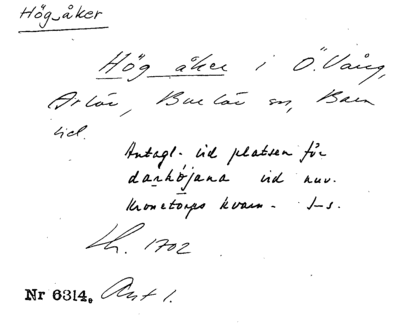 Hög-åker
Hög åker i Ö. Vång,
Arlöv, Burlöv sn, Bara
hd.
Antagl. vid platsen för
danhöjana vid nuv.
Kronetorps kvarn. I-s.
Lh. 1702
Nr 6314. Ant 1.